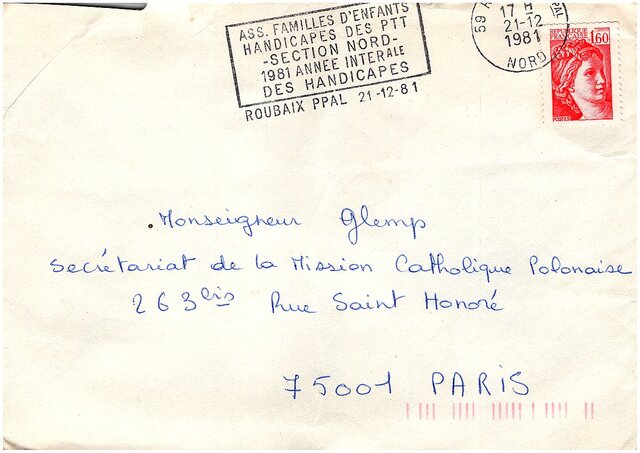 ASS. FAMILLES D'ENFANTS
HANDICAPES DES PTT
-SECTION NORD-
1981 ANNEE INTERALE
DES HANDICAPES
ROUBAIX PPAL 21-12-81
59
17 H
21-12
1981
NORD
REPUBLIQUE
FRANCAISE
1,60
POSTES
Monseigneur Glemp
Secrétariat de la Mission Catholique Polonaise
263bis Rue Saint Honoré
75001 PARIS